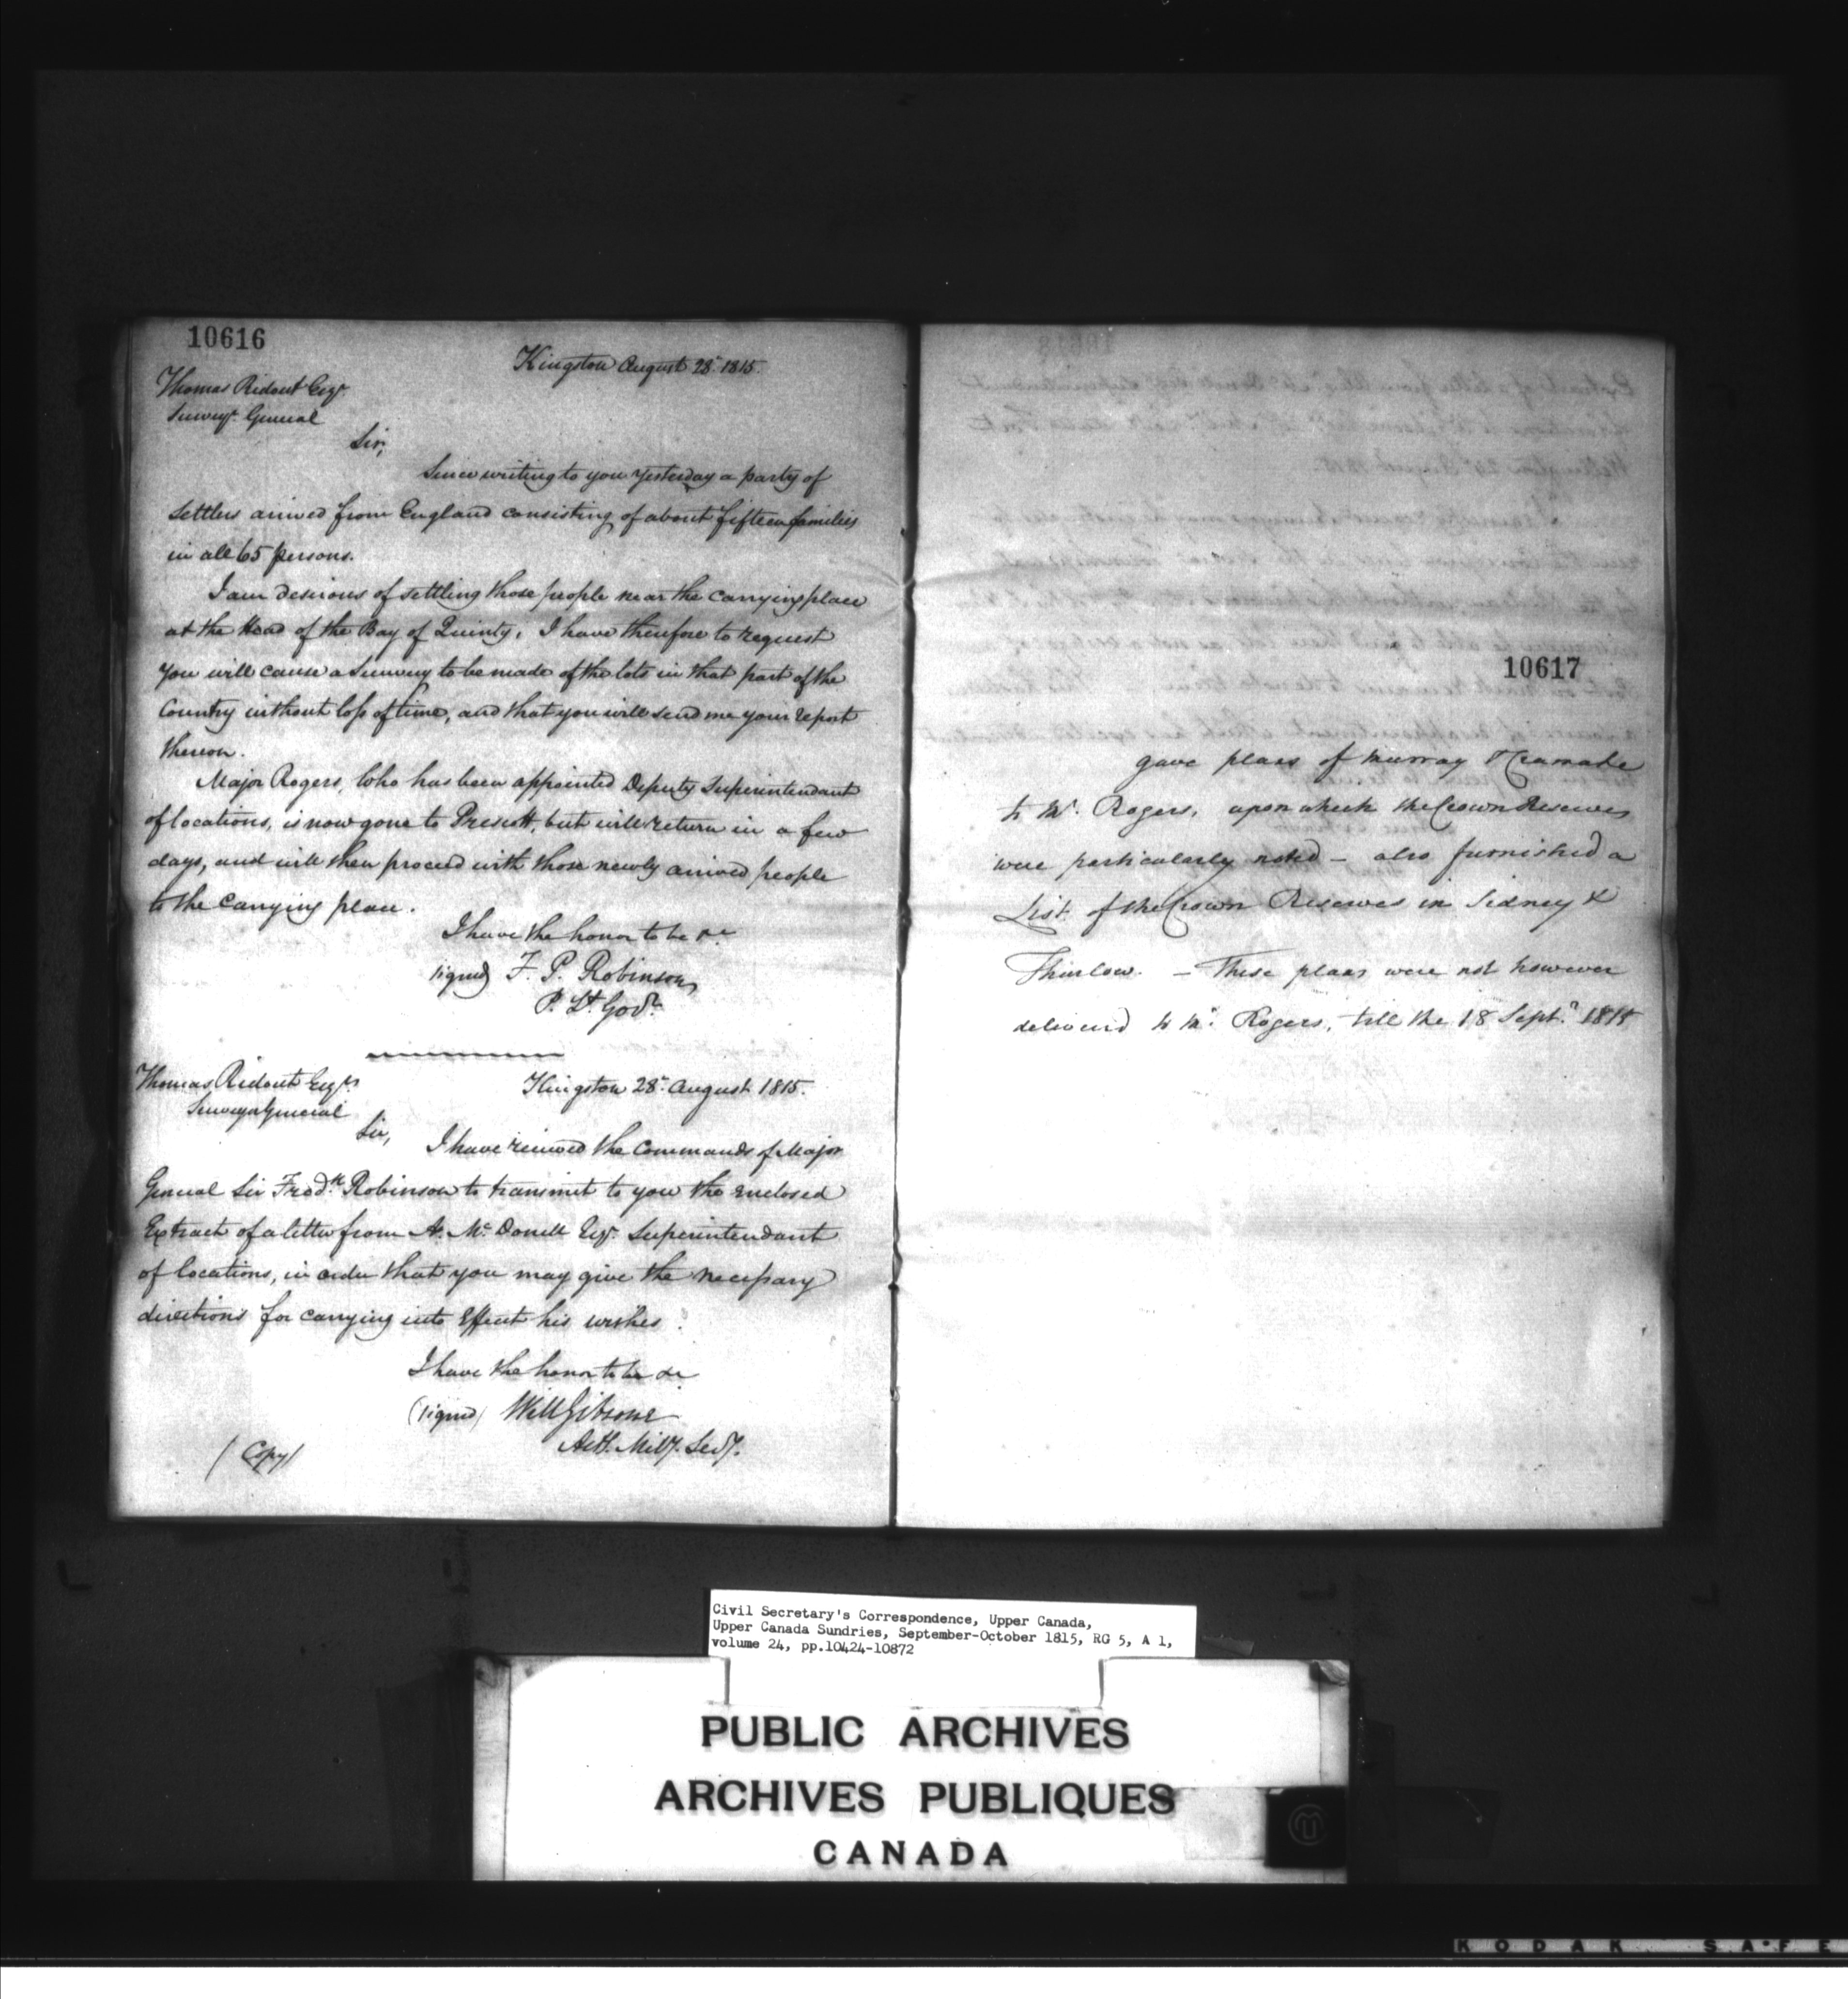 10616
Kingston August 28th 1815.
Thomas Ridout Esqr
Surveyr General
Sir,
Since writing to you yesterday a party of
settlers arrived from England consisting of about fifteen families
in all 65 persons.
I am desirous of settling those people near the carrying place
at the Head of the Bay of Quinty, I have therefore to request
you will cause a Survey to be made of the lots in that part of the
Country without loss of time, and that you will send me your report
thereon.
Major Rogers, who has been appointed Deputy Superintendant
of locations, is now gone to Prescott, but will return in a few
days, and will then proceed with those newly arrived people
to the Carrying place.
I have the honor to be &c
signed F. P. Robinson
P. Lt. Govr.
Thomas Ridout Esqr
Kingston 28th August 1815.
Surveyor General
Sir,
I have received the Commands of Major
General Sir Fredk Robinson to transmit to you the enclosed
Extract of a letter from A. Mc Donell Esqr. Superintendant
of locations, in order that you may give the necessary
directions for carrying into Effect his wishes.
I have the honor to be &c
(signed) Will Gibsone
Actg. Mility. Secy.
(Copy)
10617
gave plans of Murray & Cramahe
to Mr. Rogers, upon which the Crown Reserves
were particularly noted – also furnished a
List of the Crown Reserves in Sidney &
Thurlow. – These plans were not however
delivered to Mr. Rogers, till the 18 Septr. 1815
Civil Secretary's Correspondence, Upper Canada,
Upper Canada Sundries, September-October 1815, RG 5, A 1,
volume 24, pp.10424-10872
PUBLIC ARCHIVES
ARCHIVES PUBLIQUES
CANADA
KODAK SAFE